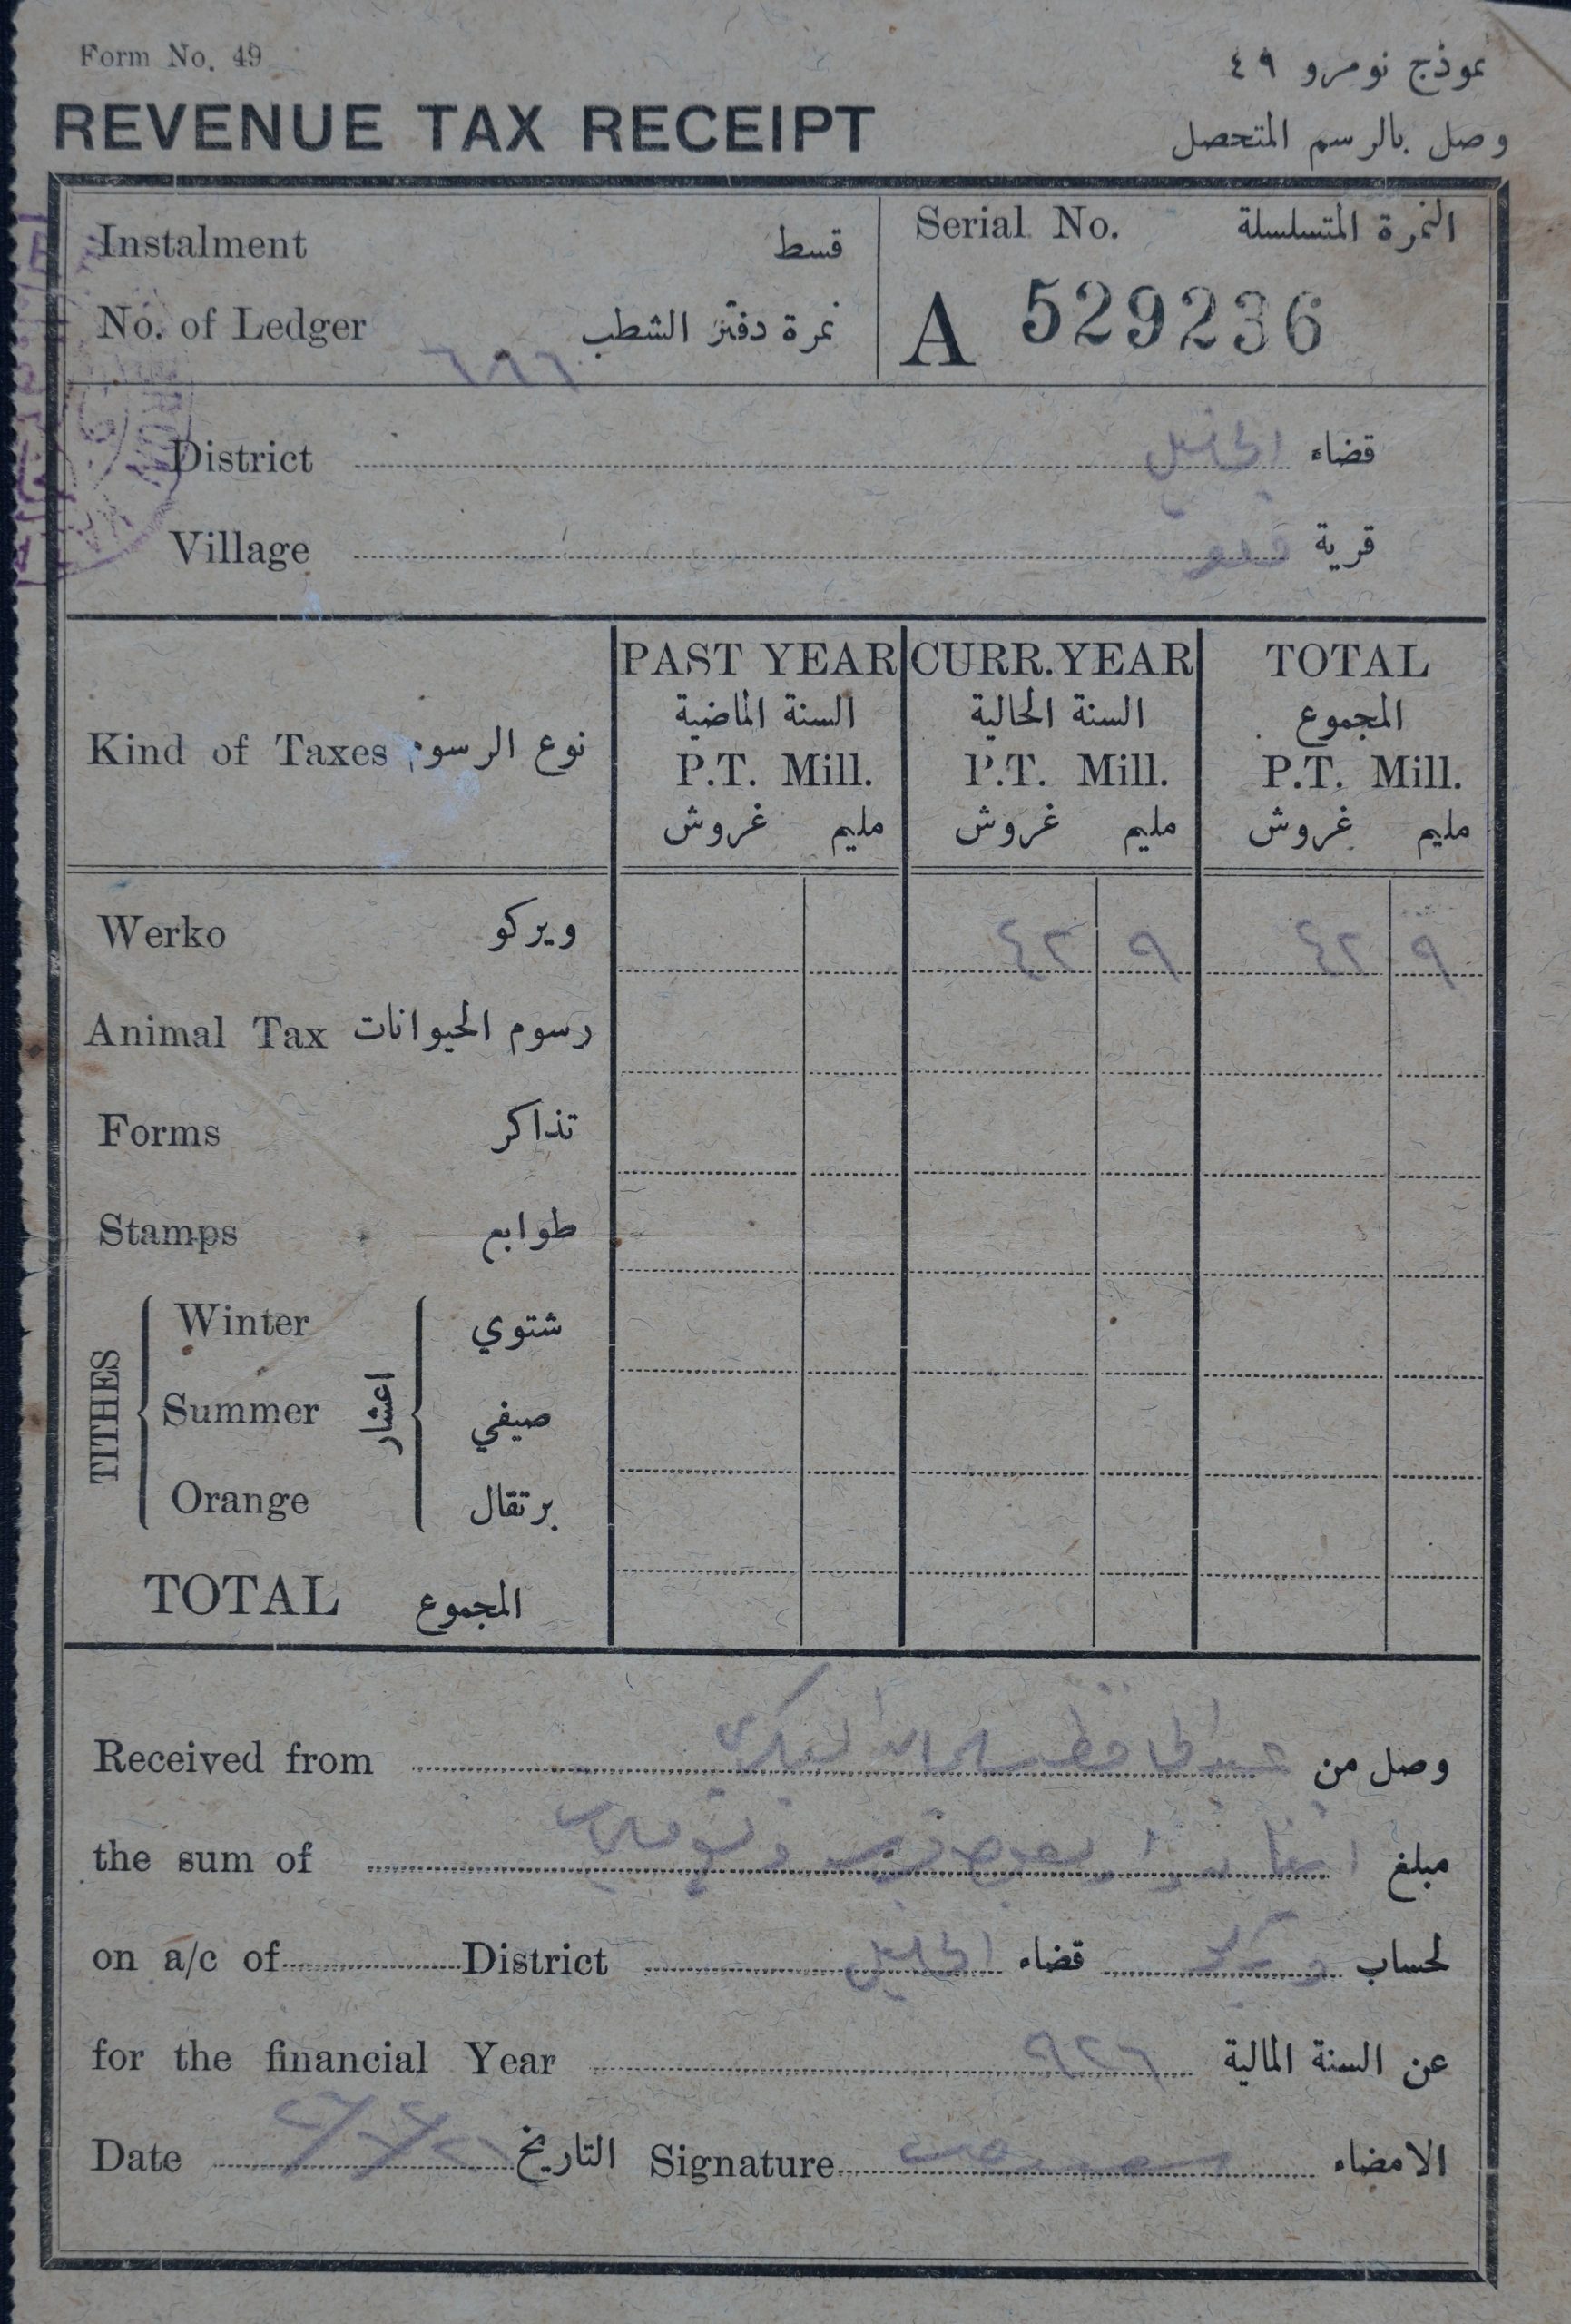 Form No. 49 نموذج نومرو ٤٩
REVENUE TAX RECEIPT وصل بالرسم المتحصل
Instalment قسط
No. of Ledger نمرة دفتر الشطب ٦٩٦
Serial No. النمرة المتسلسلة
A 529236
District الخليل قضاء
Village قرية
Kind of Taxes نوع الرسوم
PAST YEAR CURR.YEAR TOTAL
السنة الماضية السنة الحالية المجموع
P.T. Mill. P.T. Mill. P.T. Mill.
غروش مليم غروش مليم غروش مليم
Werko ويركو ٤٢ ٩ ٤٢ ٩
Animal Tax رسوم الحيوانات
Forms تذاكر
Stamps طوابع
TITHES اعشار
Winter شتوي
Summer صيفي
Orange برتقال
TOTAL المجموع
Received from وصل من عبد الحافظ
the sum of مبلغ
on a/c of District لحساب ويركو قضاء الخليل
for the financial Year عن السنة المالية ٩٢٦
Date التاريخ Signature الامضاء